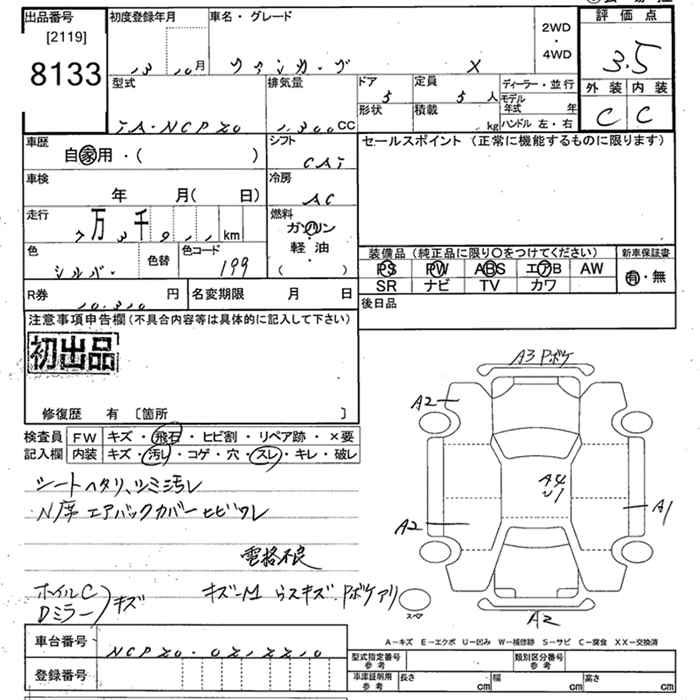 出品番号
[2119]
8133
初度登録年月
13 10月
車名・グレード
ファンカーゴ X
2WD
・
4WD
評価点
3.5
外装 内装
C C
型式
TA-NCP20
排気量
1.300CC
ドア
5
定員
5人
形状
積載
kg
ディーラー・並行
モデル年式 年
ハンドル 左・右
車歴
自家用・( )
シフト
CAT
車検
年 月( 日)
冷房
AC
走行
7万3千9 km
燃料
ガソリン
軽・油
( )
色
シルバー
色替
色コード
199
R券
10.310 円
名変期限 月 日
セールスポイント (正常に機能するものに限ります)
装備品 (純正品に限り○をつけてください)
PS PW ABS エアB AW
SR ナビ TV カワ
新車保証書
有・無
後日品
注意事項申告欄(不具合内容等は具体的に記入して下さい)
初出品
修復歴 有 〔箇所 〕
検査員
記入欄
FW キズ・飛石・ヒビ割・リペア跡・×要
内装 キズ・汚レ・コゲ・穴・スレ・キレ・破レ
シートヘタリ、シミ汚レ
N/席エアバックカバーヒビワレ
電格不良
ホイルC
Dミラー)キズ
キズ-M1 うスキズ. Pポケアリ
A3 Pポケ
A2
A4
U1
A1
A2
A2
スペア
A-キズ E-エクボ U-凹み W-補修跡 S-サビ C-腐食 XX-交換済
車台番号
NCP20-0212210
登録番号
型式指定番号
参考
類別区分番号
参考
車庫証明用
参考
長さ cm
幅 cm
高さ cm